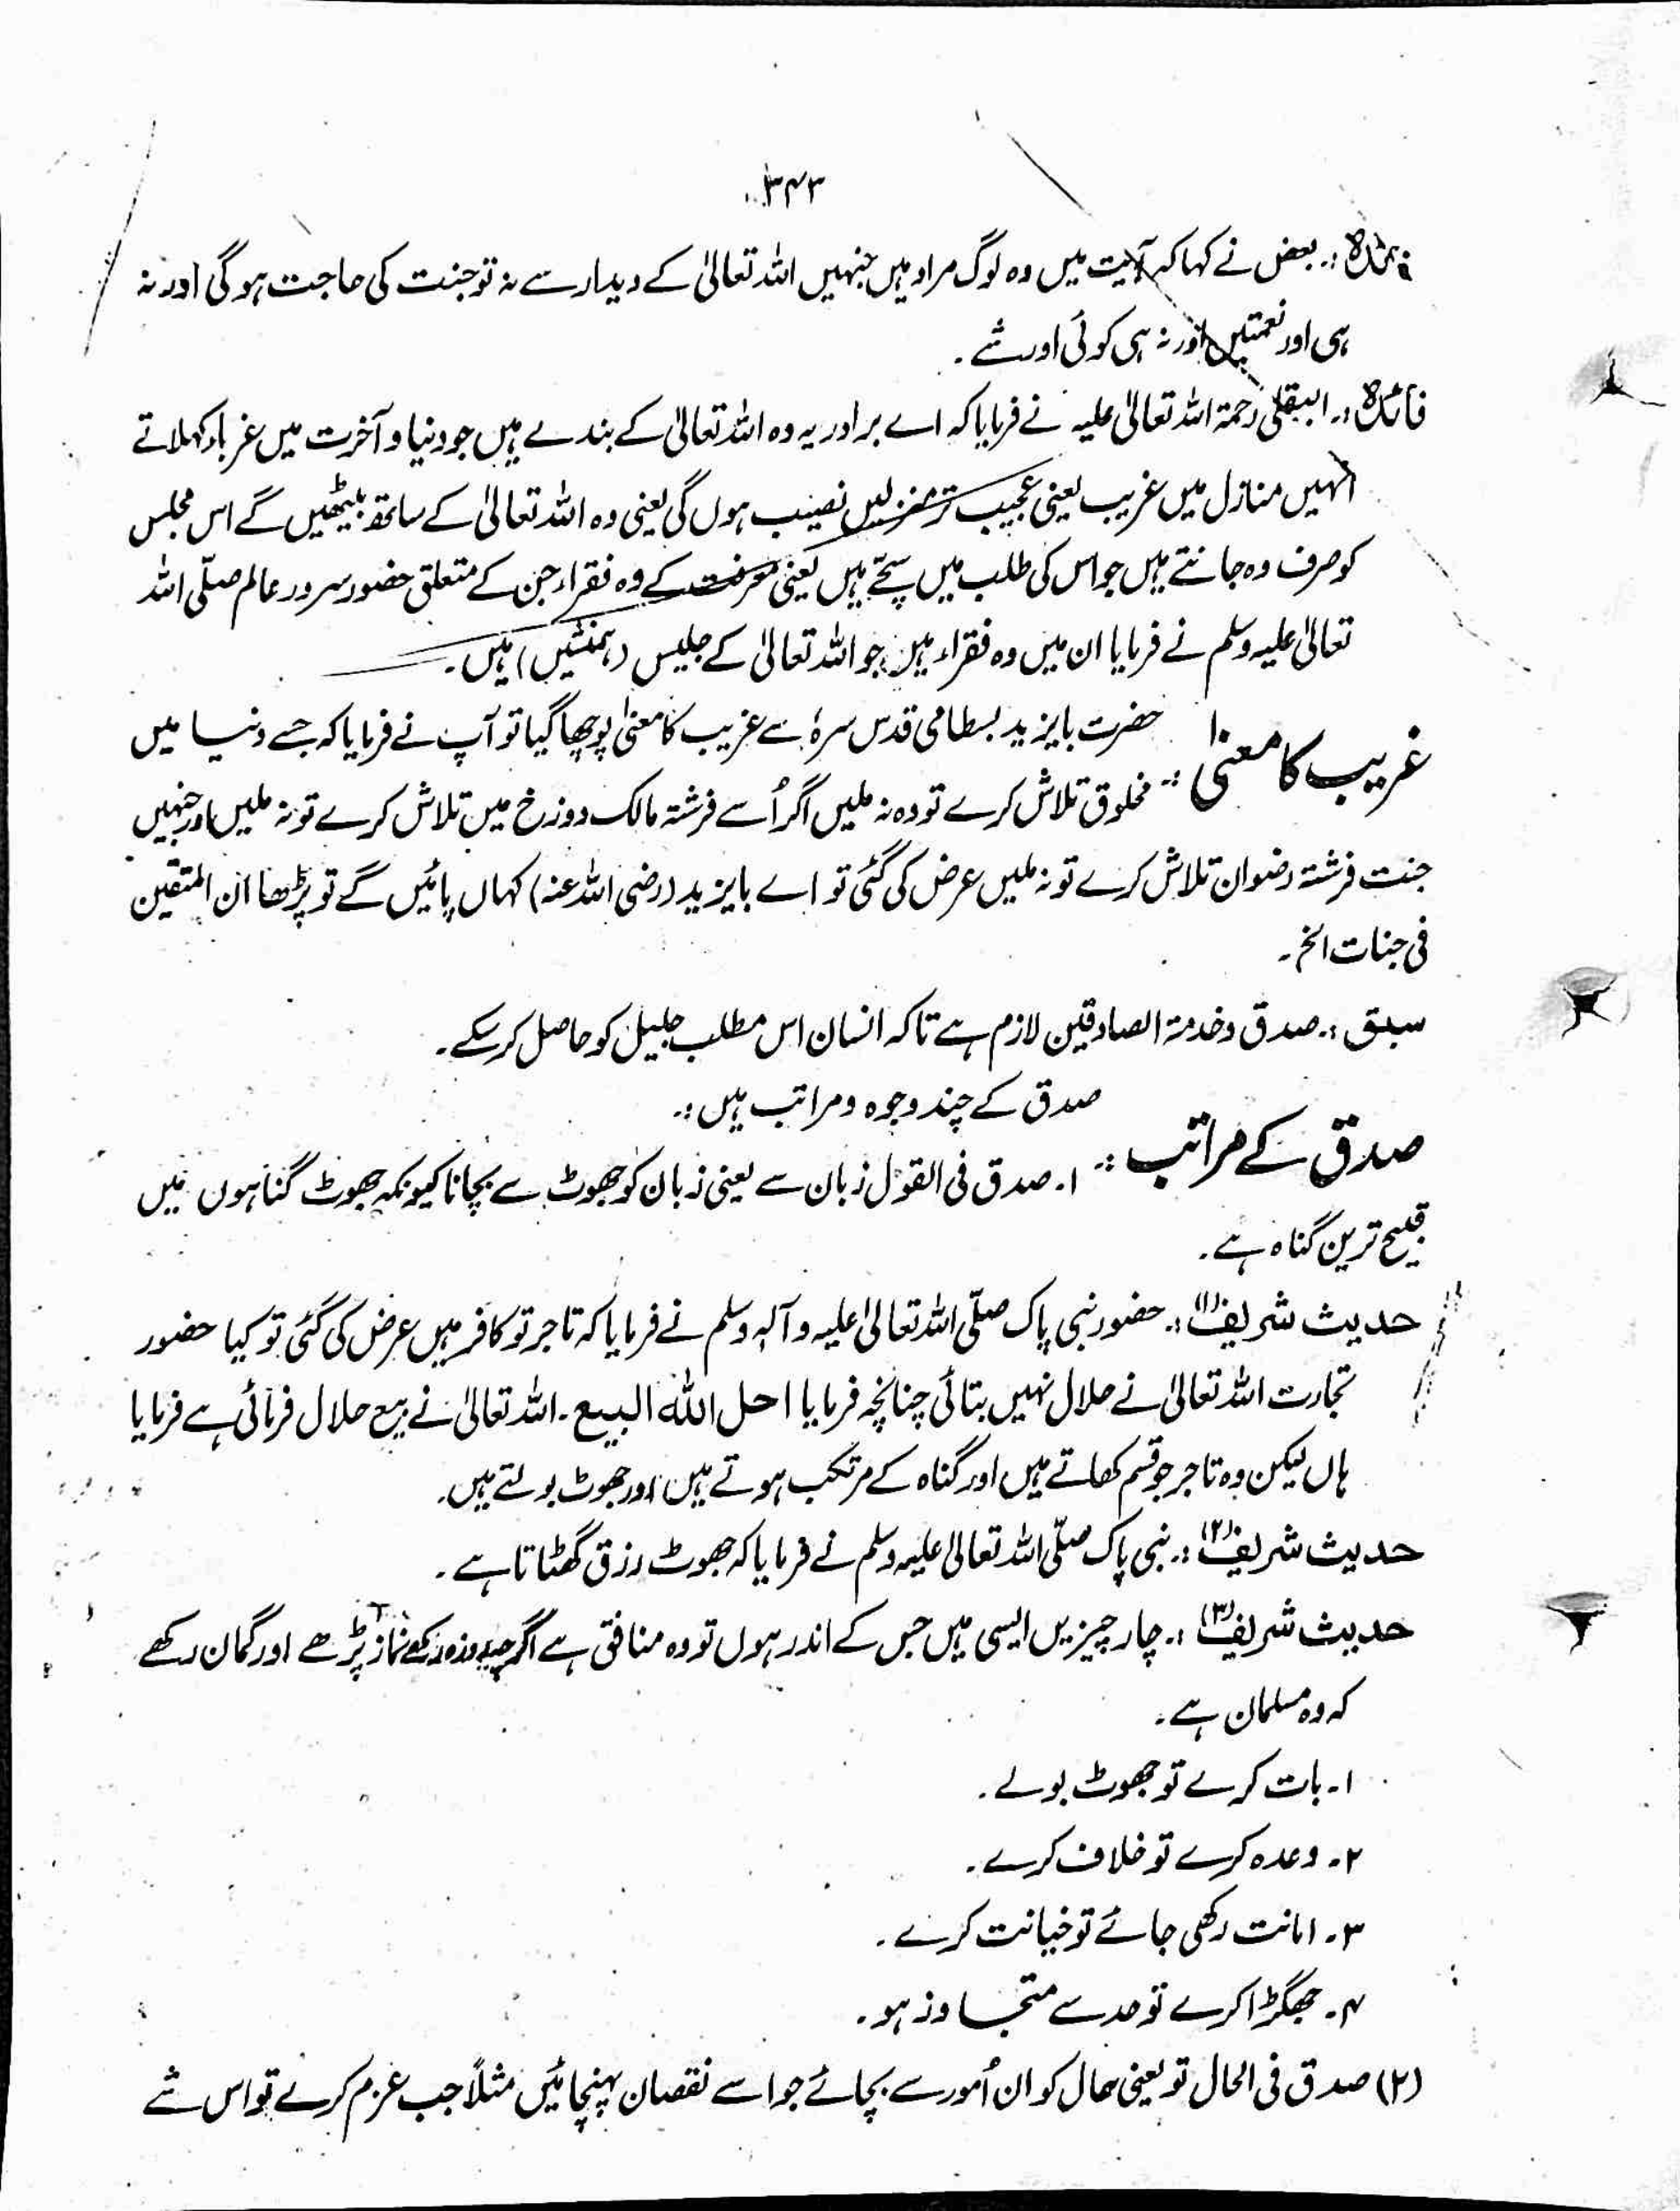 ۳۴۳
فائدہ :۔ بعض نے کہا کہ آیت میں وہ لوگ مراد ہیں جنہیں اللہ تعالیٰ کے دیدار سے نہ تو جنت کی حاجت ہوگی اور نہ
ہی اور نعمتیں اور نہ ہی کوئی اور شے ۔
فائدہ :۔ البقلی رحمۃ اللہ تعالیٰ علیہ نے فرمایا کہ اے برادر یہ وہ اللہ تعالیٰ کے بندے ہیں جو دنیا و آخرت میں غرباء کہلاتے
انہیں منازل میں غریب یعنی عجیب تر منزلیں نصیب ہوں گی یعنی وہ اللہ تعالیٰ کے ساتھ بیٹھیں گے اس مجلس
کو صرف وہ جانتے ہیں جو اس کی طلب میں سچے ہیں یعنی معرفت کے وہ فقراء جن کے متعلق حضور سرور عالم صلّی اللہ
تعالیٰ علیہ وسلم نے فرمایا ان میں وہ فقراء ہیں جو اللہ تعالیٰ کے جلیس (ہمنشیں) ہیں ۔
غریب کا معنیٰ :۔ حضرت بایزید بسطامی قدس سرہٗ سے غریب کا معنیٰ پوچھا گیا تو آپ نے فرمایا کہ جسے دنیا میں
مخلوق تلاش کرے تو وہ نہ ملیں اگر اُسے فرشتہ مالک دوزخ میں تلاش کرے تو نہ ملیں اور جنہیں
جنت فرشتہ رضوان تلاش کرے تو نہ ملیں عرض کی گئی تو اے بایزید (رضی اللہ عنہ) کہاں پائیں گے تو پڑھا ان المتقین
فی جنات الخ ۔
سبق :۔ صدق و خدمۃ الصادقین لازم ہے تاکہ انسان اس مطلب جلیل کو حاصل کر سکے ۔
صدق کے مراتب :۔ صدق کے چند وجوہ و مراتب ہیں :۔
۱۔ صدق فی القول زبان سے یعنی زبان کو جھوٹ سے بچانا کیونکہ جھوٹ گناہوں میں
قبیح ترین گناہ ہے ۔
حدیث شریف (۱) :۔ حضور نبی پاک صلّی اللہ تعالیٰ علیہ و آلہ وسلم نے فرمایا کہ تاجر تو کافر ہیں عرض کی گئی تو کیا حضور
تجارت اللہ تعالیٰ نے حلال نہیں بتائی چنانچہ فرمایا احل اللہ البیع ۔ اللہ تعالیٰ نے بیع حلال فرمائی ہے فرمایا
ہاں لیکن وہ تاجر جو قسم کھاتے ہیں اور گناہ کے مرتکب ہوتے ہیں اور جھوٹ بولتے ہیں ۔
حدیث شریف (۲) :۔ نبی پاک صلّی اللہ تعالیٰ علیہ وسلم نے فرمایا کہ جھوٹ رزق گھٹاتا ہے ۔
حدیث شریف (۳) :۔ چار چیزیں ایسی ہیں جس کے اندر ہوں تو وہ منافق ہے اگرچہ روزہ رکھے نماز پڑھے اور گمان رکھے
کہ وہ مسلمان ہے ۔
۱۔ بات کرے تو جھوٹ بولے ۔
۲۔ وعدہ کرے تو خلاف کرے ۔
۳۔ امانت رکھی جائے تو خیانت کرے ۔
۴۔ جھگڑا کرے تو حد سے متجاوز ہو ۔
(۲) صدق فی الحال تو یعنی حال کو ان اُمور سے بچائے جو اسے نقصان پہنچائیں مثلاً جب عزم کرے تو اس شے